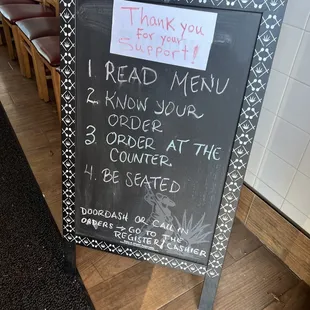 Thank you
for your
support!
1. READ MENU
2. KNOW YOUR
ORDER
3. ORDER AT THE
COUNTER
4. BE SEATED
DOORDASH OR CALL IN
ORDERS → GO TO THE
REGISTER/CASHIER